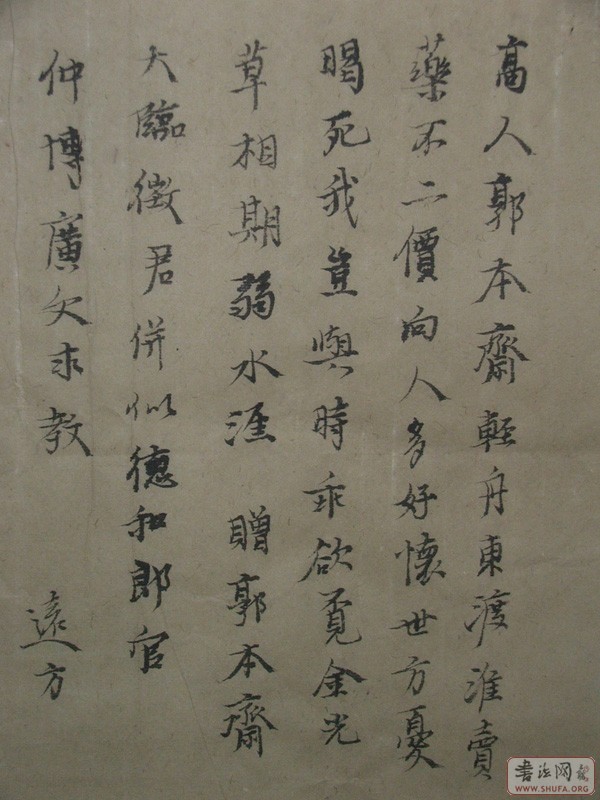 高人郭本齋輕舟東渡淮賣
藥不二價向人多好懷世方憂
暍死我豈與時乖欲覓金光
草相期弱水涯 贈郭本齋
大臨徵君併似德和郎官
仲博廣文求教
遠方
書法网
www.SHUFA.ORG